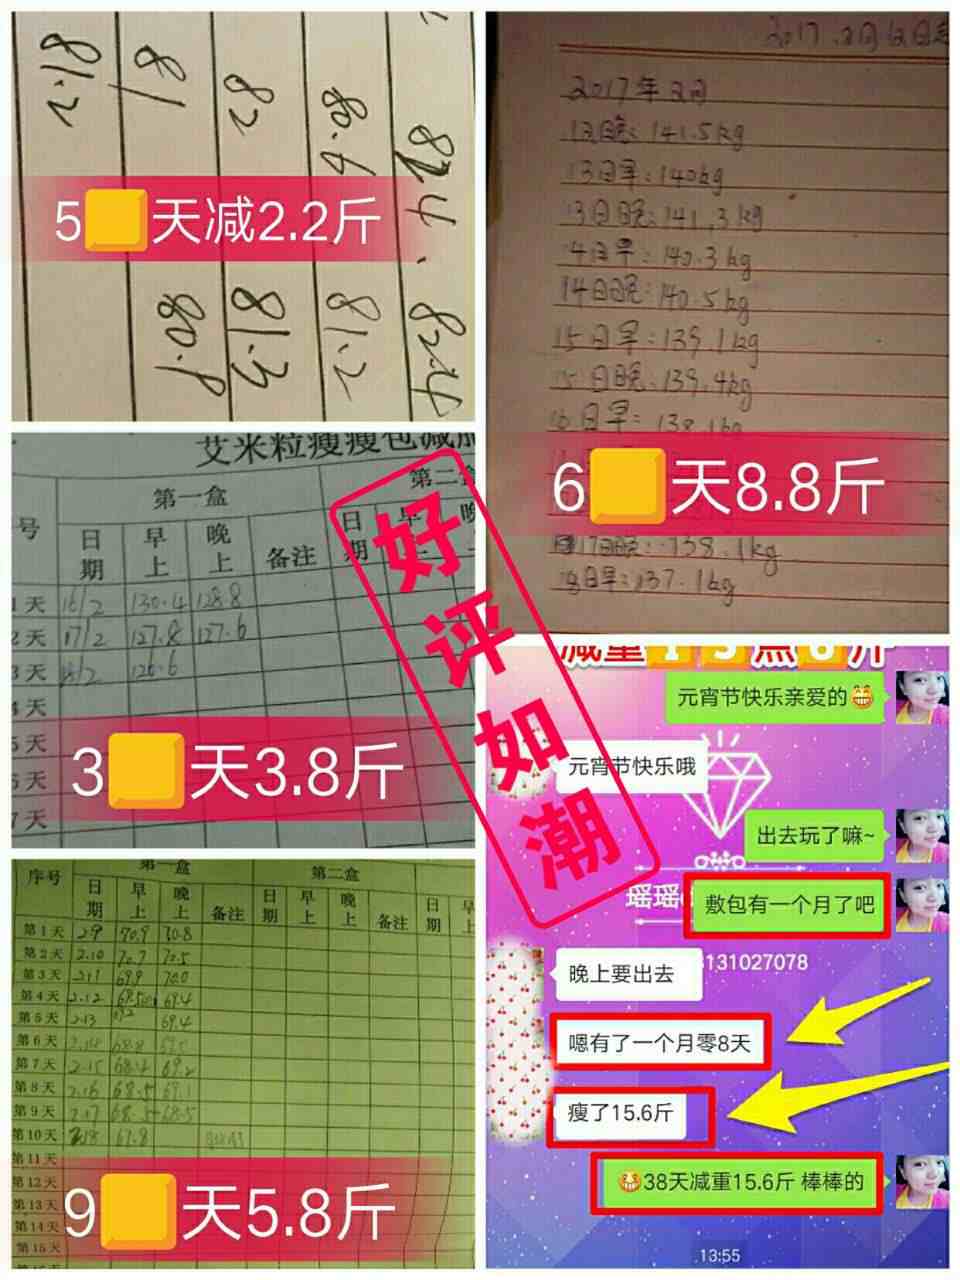 81.2
81
82
80.6
824.
80.9
81.3
81.2
82.4
5天减2.2斤
2017年2月
12日晚:141.5kg
13日早:140kg
13日晚:141.3kg
14日早:140.3kg
14日晚:140.5kg
15日早:139.1kg
15日晚:139.4kg
16日早:138.1kg
6天8.8斤
17日晚:138.1kg
18日早:137.1kg
艾米粒瘦瘦包减肥
号 第一盒 第二盒
日期 早上 晚上 备注 日期 早上 晚
1天 16/2 130.4 128.8
2天 17/2 127.8 127.6
3天 18/2 126.6
4天
5天
6天
7天
3天3.8斤
好评如潮
序号 第一盒 第二盒
日期 早上 晚上 备注 日期 早上 晚上 备注 日期 早上
第1天 2.9 70.9 70.8
第2天 2.10 70.7 70.5
第3天 2.11 69.9 70.0
第4天 2.12 69.4
第5天 2.13 69.4
第6天 2.14 68.8
第7天 2.15 68.4 69.2
第8天 2.16 68.5 69.1
第9天 2.17 68.5 68.5
第10天 2.18 67.8
第11天
第12天
第13天
第14天
第15天
9天5.8斤
元宵节快乐亲爱的
元宵节快乐哦
出去玩了嘛~
瑶瑶
敷包有一个月了吧
晚上要出去
131027078
嗯有了一个月零8天
瘦了15.6斤
38天减重15.6斤 棒棒的
13:55